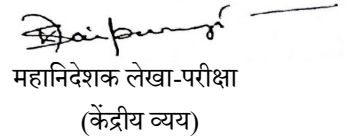 महानिदेशक लेखा-परीक्षा
(केंद्रीय व्यय)